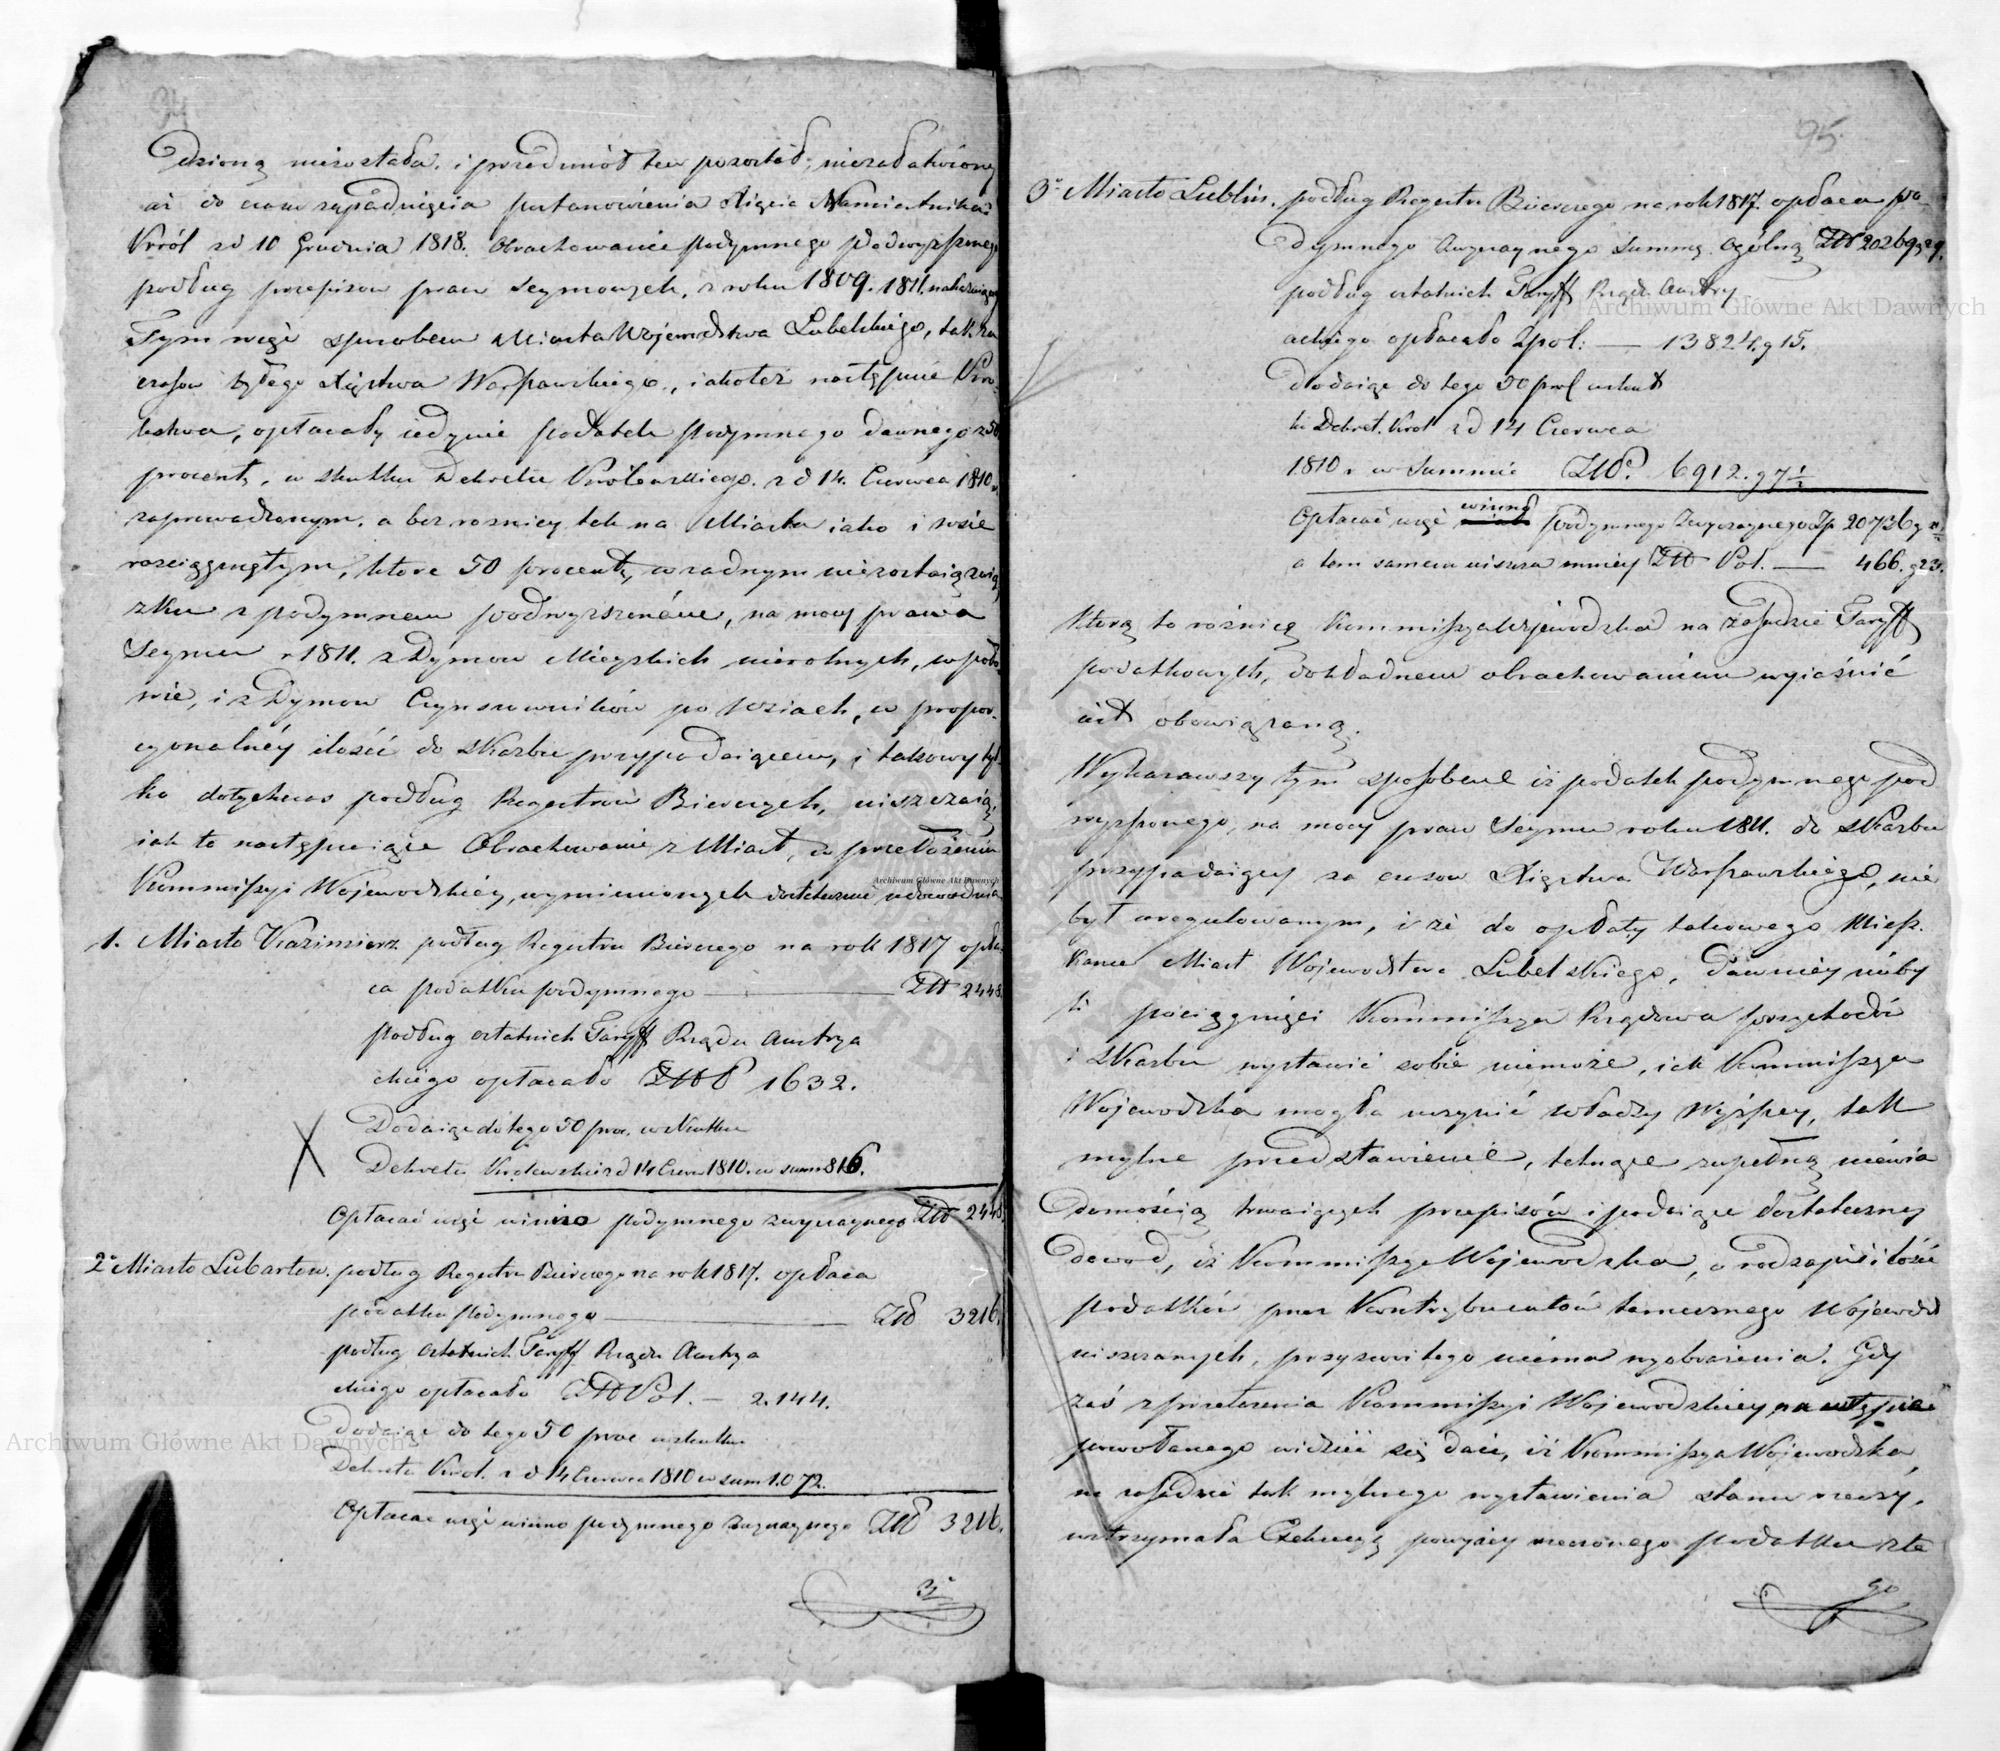 94
dzioną niezostała, i przedmiot ten pozostał, niezałatwiony
aż do czasu zapadnięcia postanowienia Xięcia Namiestnika
Król: z d 10 Grudnia 1818. Obrachowanie podymnego podwyższonego
podług przepisow praw Seymowych, z roku 1809. 1811. nakazuiącego
Tym więc sposobem Miasta Województwa Lubelskiego, tak za
czasow byłego Xięstwa Warszawskiego, iakoteż następnie Kró-
lestwa, opłacały iedynie podatek podymnego dawnego z 50
procentą, w skutku Dekretu Królewskiego z d 14. Czerwca 1810 r.
zaprowadzonym, a bez roznicy tak na Miasta iako i wsie
rozciągniętym, ktore 50 procentu, w żadnym niezostaią zwią-
zku z podymnem podwyższonem, na mocy prawa
Seymu r 1811. z Dymow Mieyskich nierolnych, w poło-
wie, i z Dymow Czynszowników po wsiach, w propor-
cyonalnéy ilości do skarbu przypadaiącem, i takowy tyl-
ko dotychczas podług Regestrów Bierczych, uiszczaią,
iak to następuiące Obrachowanie z Miast, w przełożeniu
Kommissyi Wojewodzkiéy, wymienionych dostatecznie udowodnia
1. Miasto Kazimierz podług Regestru Bierczego na rok 1817 opła-
ca podatku podymnego — Złł 2448.
podług ostatnich Taryff Rządu Austrya
ckiego opłacało Złł P 1632.
Dodaiąc do tego 50 proc. w skutku
Dekretu Królewskie z d 14 Czerw 1810. w summ 816.
Opłacać więc winno podymnego zwyczaynego Złł 2448.
2° Miasto Lubartow. podług Regestru Bierczego na rok 1817. opłaca
podatku podymnego — Złł 3216.
podług ostatnich Taryff Rządu Austrya
ckiego opłacało Złł Pol. — 2.144.
Dodaiąc do tego 50 proc w skutku
Dekretu Król. z d 14 Czerwca 1810 w sum 1.072.
Opłacać więc winno podymnego zwyczaynego Złł 3216.
3°
95.
3° Miasto Lublin, podług Regestru Bierczego na rok 1817. opłaca po-
dymnego zwyczaynego Summę Ogólną Złł 20269 g 29.
podług ostatnich Taryff Rządu Austry
ackiego opłacało Zpol: — 13824. g 15.
Dodaiąc do tego 50 prol w skut
ku Dekret. Krol z d 14 Czerwca
1810 r w Summie Złł P. 6912. g 7 1/2
Opłacać więc winno podymnego Zwyczaynego Zp 20736 g
a tem samem uiszcza mniéy Złł Pol. — 466. g 23.
którą to róznicę Kommissya Wojewodzka na zasadzie Taryff
podatkowych, dokładnem obrachowaniem wyiaśnić
iest obowiązaną.
Wykazawszy tym sposobem iż podatek podymnego pod
wyższonego, na mocy praw Seymu roku 1811. do Skarbu
przypadaiący za czasow Xięstwa Warszawskiego, nie
był uregulowanym, i że do opłaty takowego Miesz-
kańce Miast Województwa Lubelskiego, dawniéy nieby
li pociągnięci Kommissya Rządowa przychodów
i Skarbu wystawić sobie niemoże, iak Kommissya
Wojewodzka mogła uczynić władzy Wyższey, tak
mylne przedstawienie, tchnące zupełną niewia
domością trwaiących przepisów i podaiące dostateczny
dowod, iż Kommissya Wojewodzka, o rodzaju i ilości
podatków przez Kontrybuentów tamecznego Wojewodz
uiszczanych, przyzwoitego niema wyobrażenia. Gdy
zaś z przełożenia Kommissyi Wojewodzkiey na wstępie
powołanego widzieć się daie, iż Kommissya Wojewodzka,
na zasadzie tak mylnego wystawienia stanu rzeczy,
wstrzymała Exekucyą powyżey rzeczonego podatku zte
go
Archiwum Główne Akt Dawnych
Archiwum Główne Akt Dawnych
Archiwum Główne Akt Dawnych